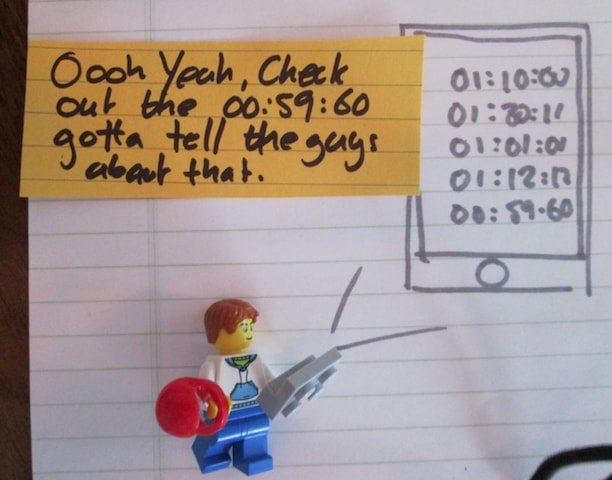 Oooh Yeah, Check
out the 00:59:60
gotta tell the guys
about that.
01:10:00
01:20:11
01:01:01
01:12:12
00:59:60